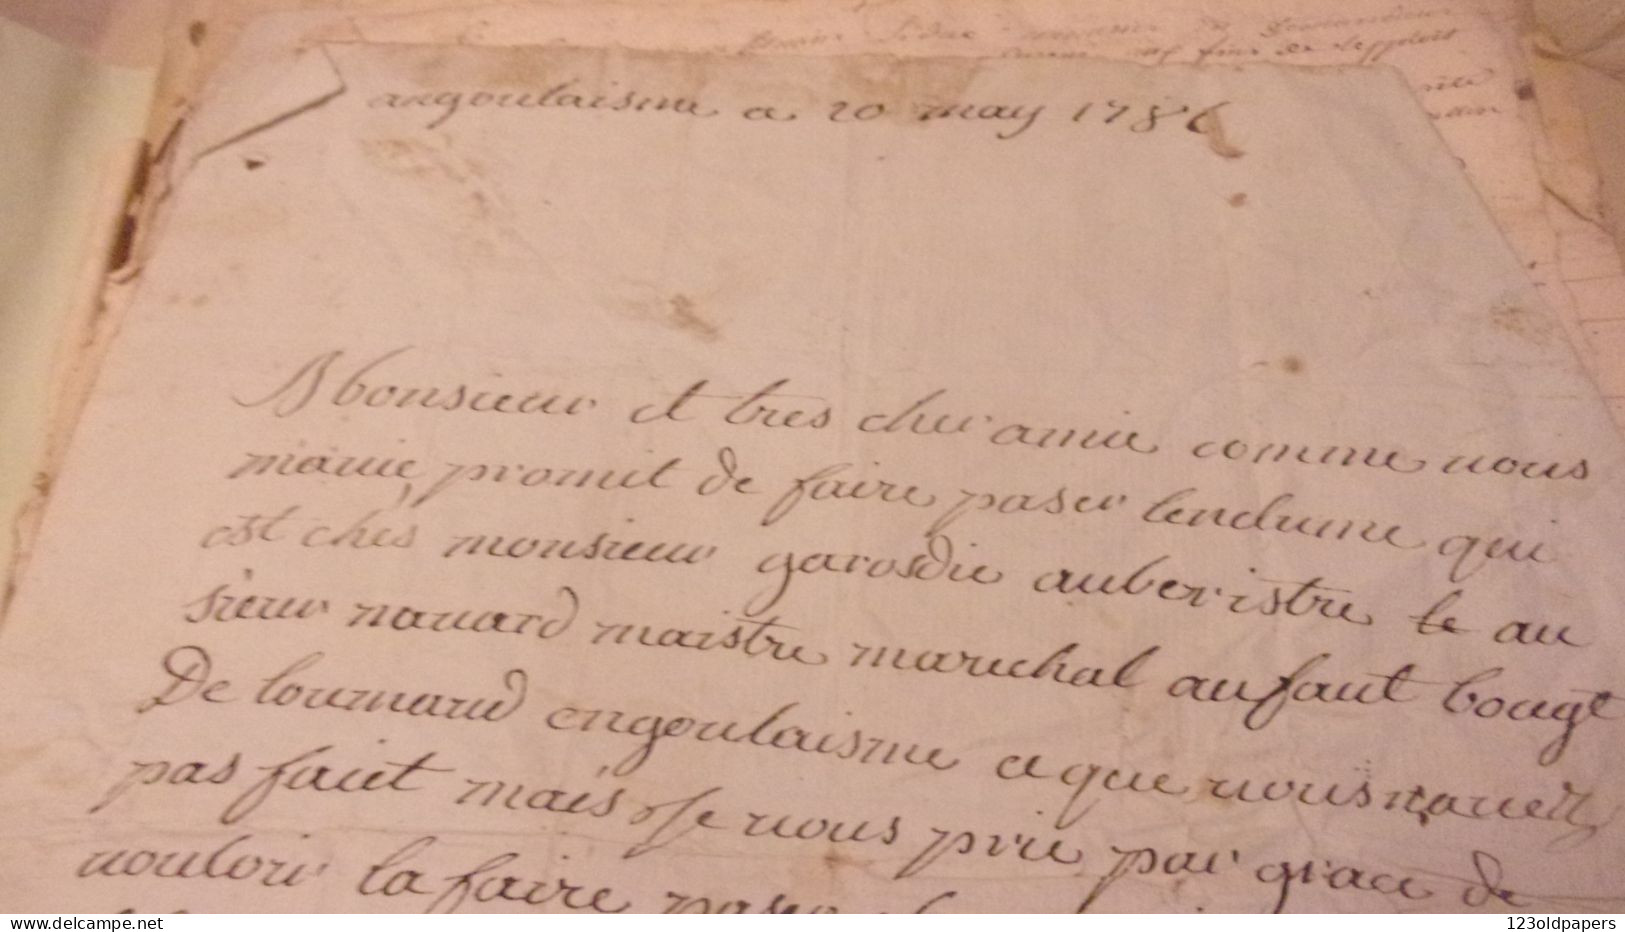 angoulaisme a 20 may 1786
Monsieur et tres cher amie comme vous
mauie promit de faire paser lendume qui
est chés monsieur garosdie auberistre le au
sieur nauard maistre marichal au faut bougt
De loumaud engoulaisme a que vous nauez
pas fait mais je vous prie par grace de
vouloir la faire paser
123oldpapers